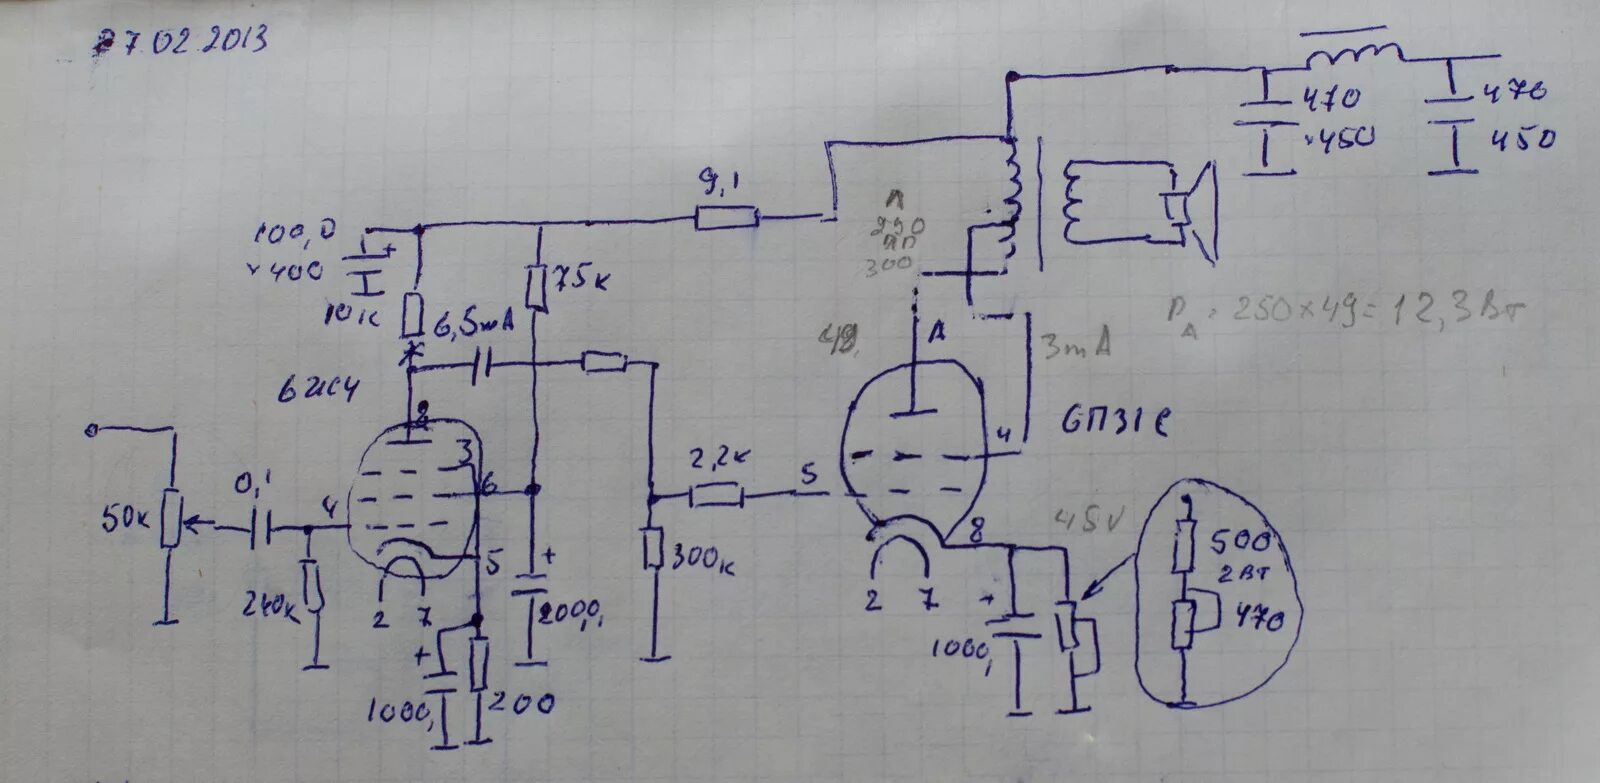 7.02.2013
470
×450
470
450
9,1
100,0
+
×400
10к
6,5mA
75к
А
250
ЯП
300
А
3mA
P_A = 250×49=12,3Вт
6Ж4
8
3
6
4
5
2
7
50к
0,1
240к
+
1000,
200
+
2000,
2,2к
300к
5
4
6П31С
8
2
7
+
1000,
45V
500
2Вт
470